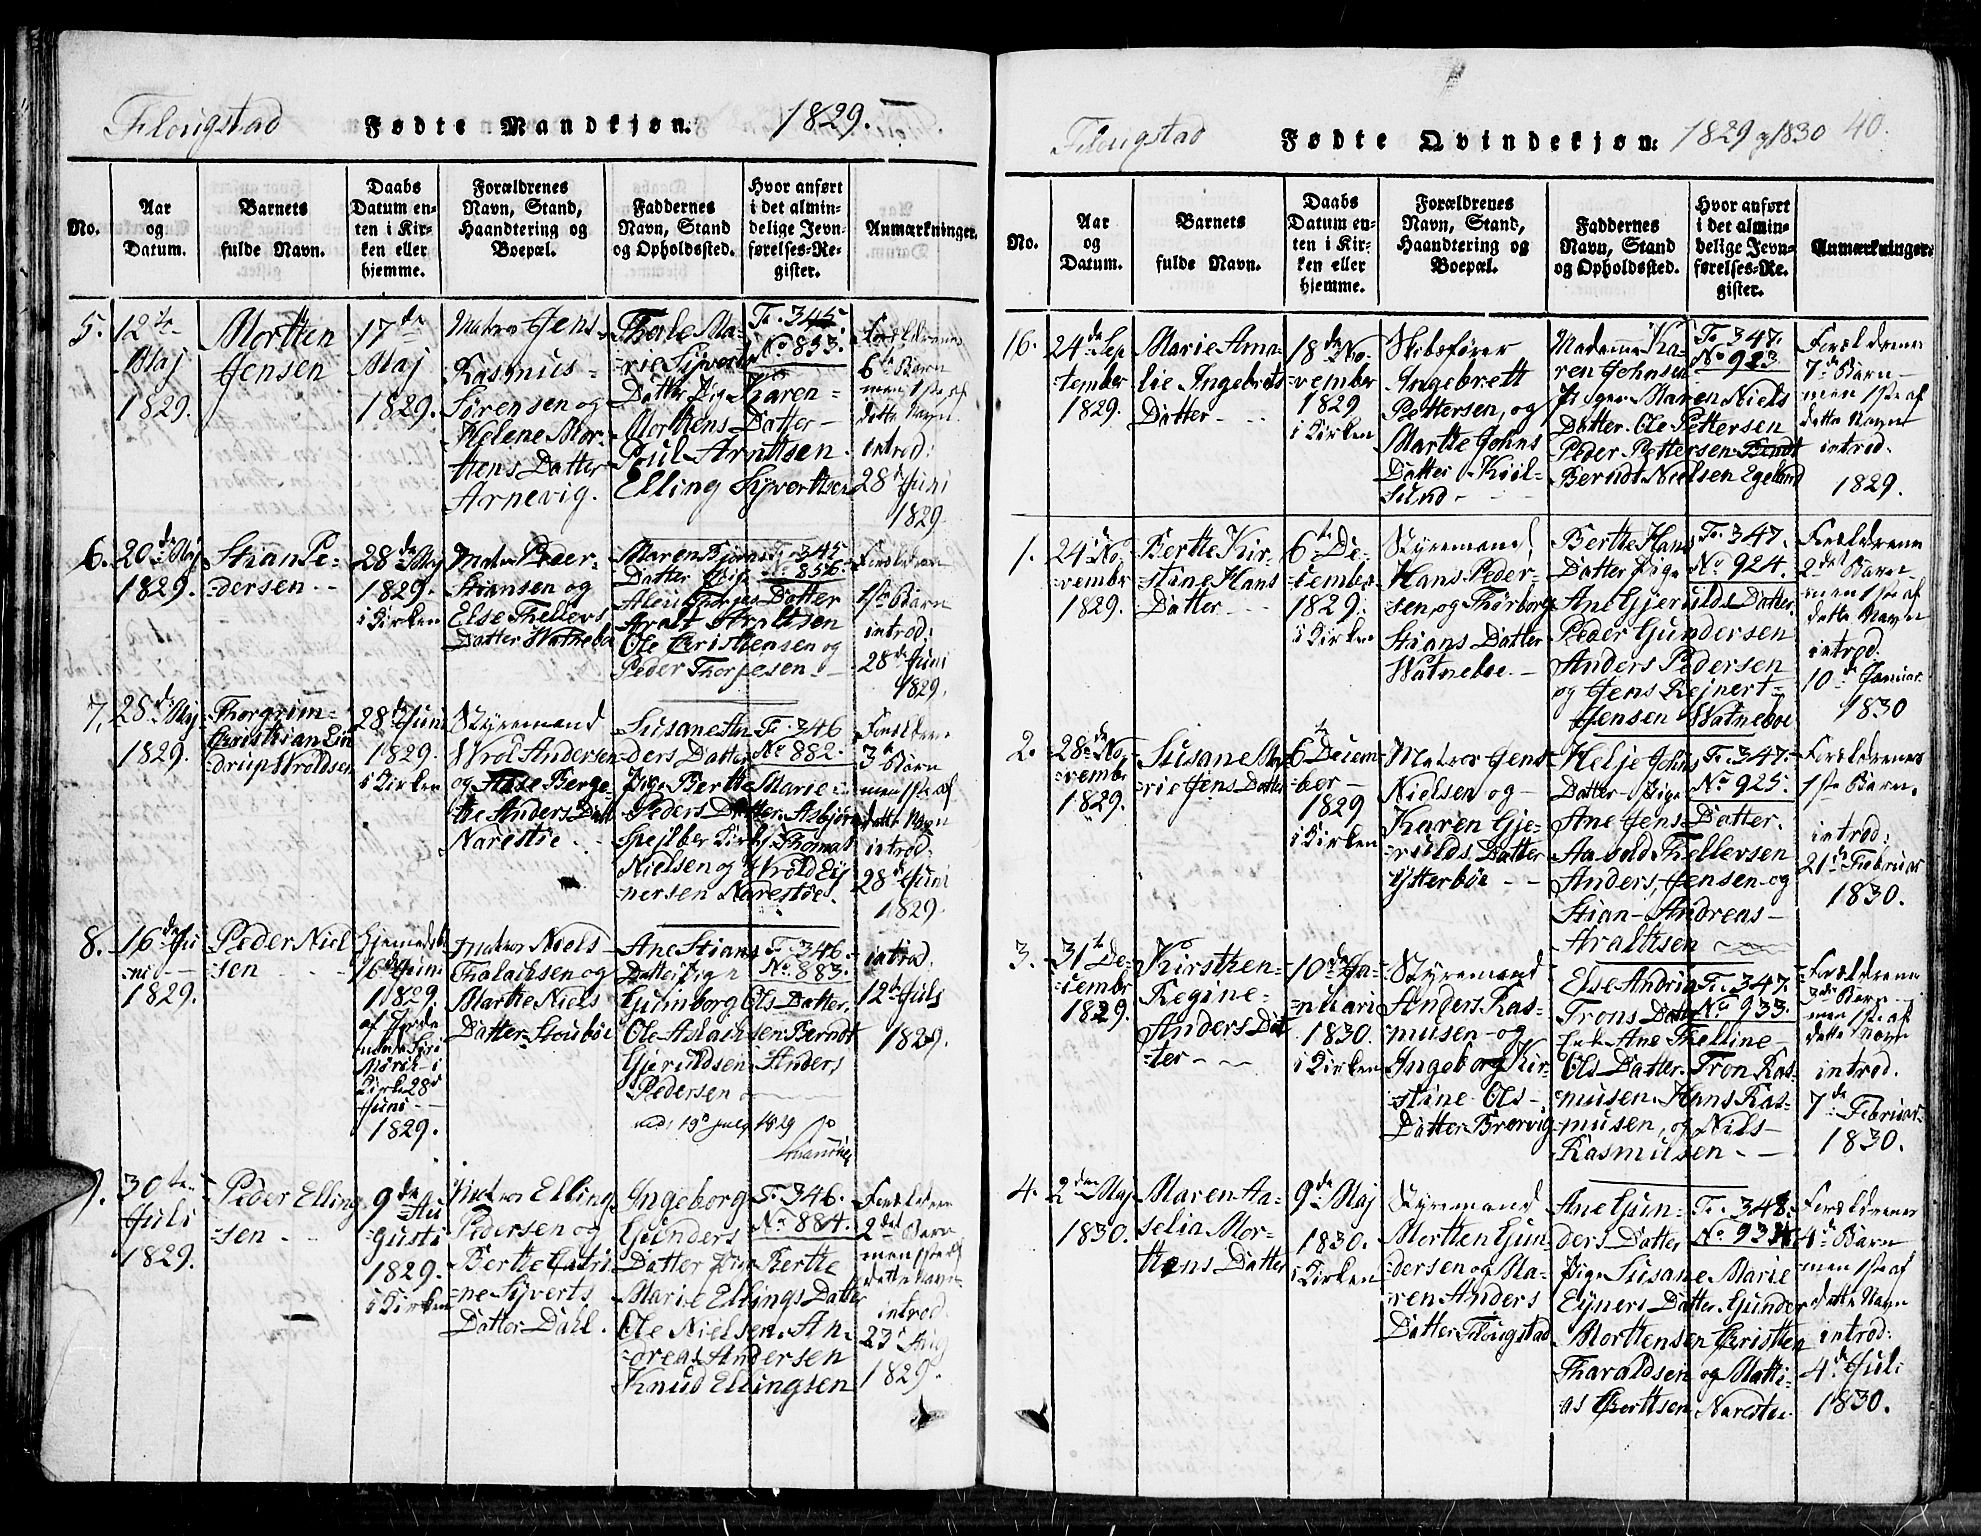 Flougstad Fødte Mandkjøn. 1829.
No.
Aar
og
Datum.
Barnets
fulde Navn.
Daabs
Datum en-
ten i Kir-
ken eller
hjemme.
Forældrenes
Navn, Stand,
Haandtering og
Boepæl.
Faddernes
Navn, Stand
og Opholdssted.
Hvor anført
i det almin-
delige Jevn-
førelses-Re-
gister.
Anmærkninger.
5.
12
Maj
1829.
Mortten
Jensen
17de
Maj
1829.
Matros Jens
Rasmus-
Sørensen og
Helene Mor-
tens Datter
Arnevig.
Therle Ma-
rie Syverts
Datter Pige Karen
Morttens Datter
Poul Arnttsen
Elling Syverttsen
Fo. 345
No 833.
Forældrenes
6te Barn
men 1ste af
dette Navn
introd:
28de Juni
1829.
6.
20de Maj
1829.
Stian Pe-
dersen
28de Maj
1829.
i Kirken
Matros Peder
Stiansen og
Else Thellevs
Datter Watneboe
Maren Bjørns
Datter Pige
Datter
Aralt Araldsen
Ole Christhensen og
Peder Thorgesen
Fo. 345
No 856.
Forældrenes
1ste Barn
introd:
28de Juni
1829.
7.
28de Maj
1829.
Thorgrim
Christhian Lin
drup Wroldsen
28de Juni
1829.
i Kirken
Styremand
Wrol Andersen
og Else Berge-
the Anders Datt
Narestøe
Susane An
ders Datter
Pige Berthe Marie
Peders Datter Asbjørn
Thomas
Nielsen og Wrold Ey
nersen Narestøe.
Fo. 346
No 882.
Forældrenes
3de Barn
men 1ste af
dette Navn
introd:
28de Juni
1829.
8.
16de Ju
ni
1829.
Peder Niel
sen
Hjemmedøbt
16de Juni
1829.
Kirke 28de
Juni
1829.
Matros Niels
og
Marthe Niels
Datter Stouboe
Ane Stians
Datter Pige
Gunborg Ols Datter.
Ole Aslachsen Berndt
Gjeruldsen Anders
Pedersen
Fo. 346.
No. 883.
introd:
12te Juli
1829.
9.
30te
Juli
1829.
Peder Elling
sen
9de Au
gusti
1829.
i Kirken
Matros Elling
Pedersen og
Berthe Catri
ne Syverts
Datter Dahl.
Ingeborg
Gunders
Datter Pige Berthe
Marie Ellings Datter
Ole Nielsen. An-
dreas Andersen
Knud Ellingsen
Fo. 346.
No. 884.
Forældrenes
2det Barn
men 1ste af
dette Navn
introd.
23de Aug
1829.
Flougstad Fødte Qvindekjøn: 1829 og 1830 40.
No.
Aar
og
Datum.
Barnets
fulde Navn.
Daabs
Datum en-
ten i Kir-
ken eller
hjemme.
Forældrenes
Navn, Stand,
Haandtering og
Boepæl.
Faddernes
Navn, Stand
og Opholdssted.
Hvor anført
i det almin-
delige Jevn-
førelses-Re-
gister.
Anmærkninger.
16.
24de Sep
tember
1829.
Marie Ama-
lie Ingebrets
Datter
18de No-
vember
1829
i Kirken
Skibsfører
Ingebrett
Pettersen, og
Marthe Johns
Datter Kiil-
sund
Madame Ka-
ren Johnsen
Pigen Maren Niels
Datter. Ole Pettersen
Peder Pettersen
Berndt Nielsen Egeland
Fo. 347.
No 923.
Forældrenes
7de Barn
men 1ste af
dette Navn
introd.
1829.
1.
24de No-
vember
1829.
Berthe Kir-
stine Hans
Datter
6te De-
cember
1829.
i Kirken
Styremand
Hans Peder-
sen, og Thorborg
Stians Datter
Watneboe.
Berthe Hans
Datter Pige
Ane Gjerulds Datter.
Peder Gundersen
Anders Pedersen
og Jens Rejnert-
Jensen Watneboe
Fo. 347.
No 924.
Forældrenes
2det Barn
men 1ste af
dette Navn
introd.
10de Januar.
1830
2.
28de No-
vembr
1829.
Susane Ma
rie Jens Datter
6te Decem-
ber
1829
i Kirken
Matros Jens
Nielsen og
Karen Gje-
rulds Datter
Ytterbøe
Helje Johns
Datter Pige
Ane Jens Datter.
Thellevsen
Anders, Jensen og
Stian Andreas
Aralttsen
Fo. 347.
No 925.
Forældrenes
1ste Barn.
introd:
21de Februar
1830.
3.
31te De-
cembr
1829.
Kirsthen
Regine
Anders Dat
ter
10de Ja-
nuari
1830.
i Kirken
Styremand
Anders Ras-
musen og
Ingeborg Kir-
stine Ols
Datter Brovig
Else Andria
Trons Datter
Enke Ane Theline
Ols Datter. Tron Ras-
musen. Hans Ras-
musen, og Nils
Rasmusen
Fo. 347.
No 933.
Forældrenes
3de Barn
men 1ste af
dette Navn
introd.
7de Februar
1830.
4.
2den Maj
1830.
Maren Aa-
selia Mor-
thens Datter
9de Maj
1830.
i Kirken
Styremand
Mortten Gun-
dersen og Ma-
ren Anders
Datter Flougstad
Ane Gun-
ders Datter
Pige Susane Marie
Eyners Datter. Gunder
Morttensen Christhen
Tharaldsen og Matti-
as Gierttsen Narestøe
Fo. 348.
No 934
Forældrenes
4de Barn
men 1ste af
dette Navn
introd:
4de Juli
1830.